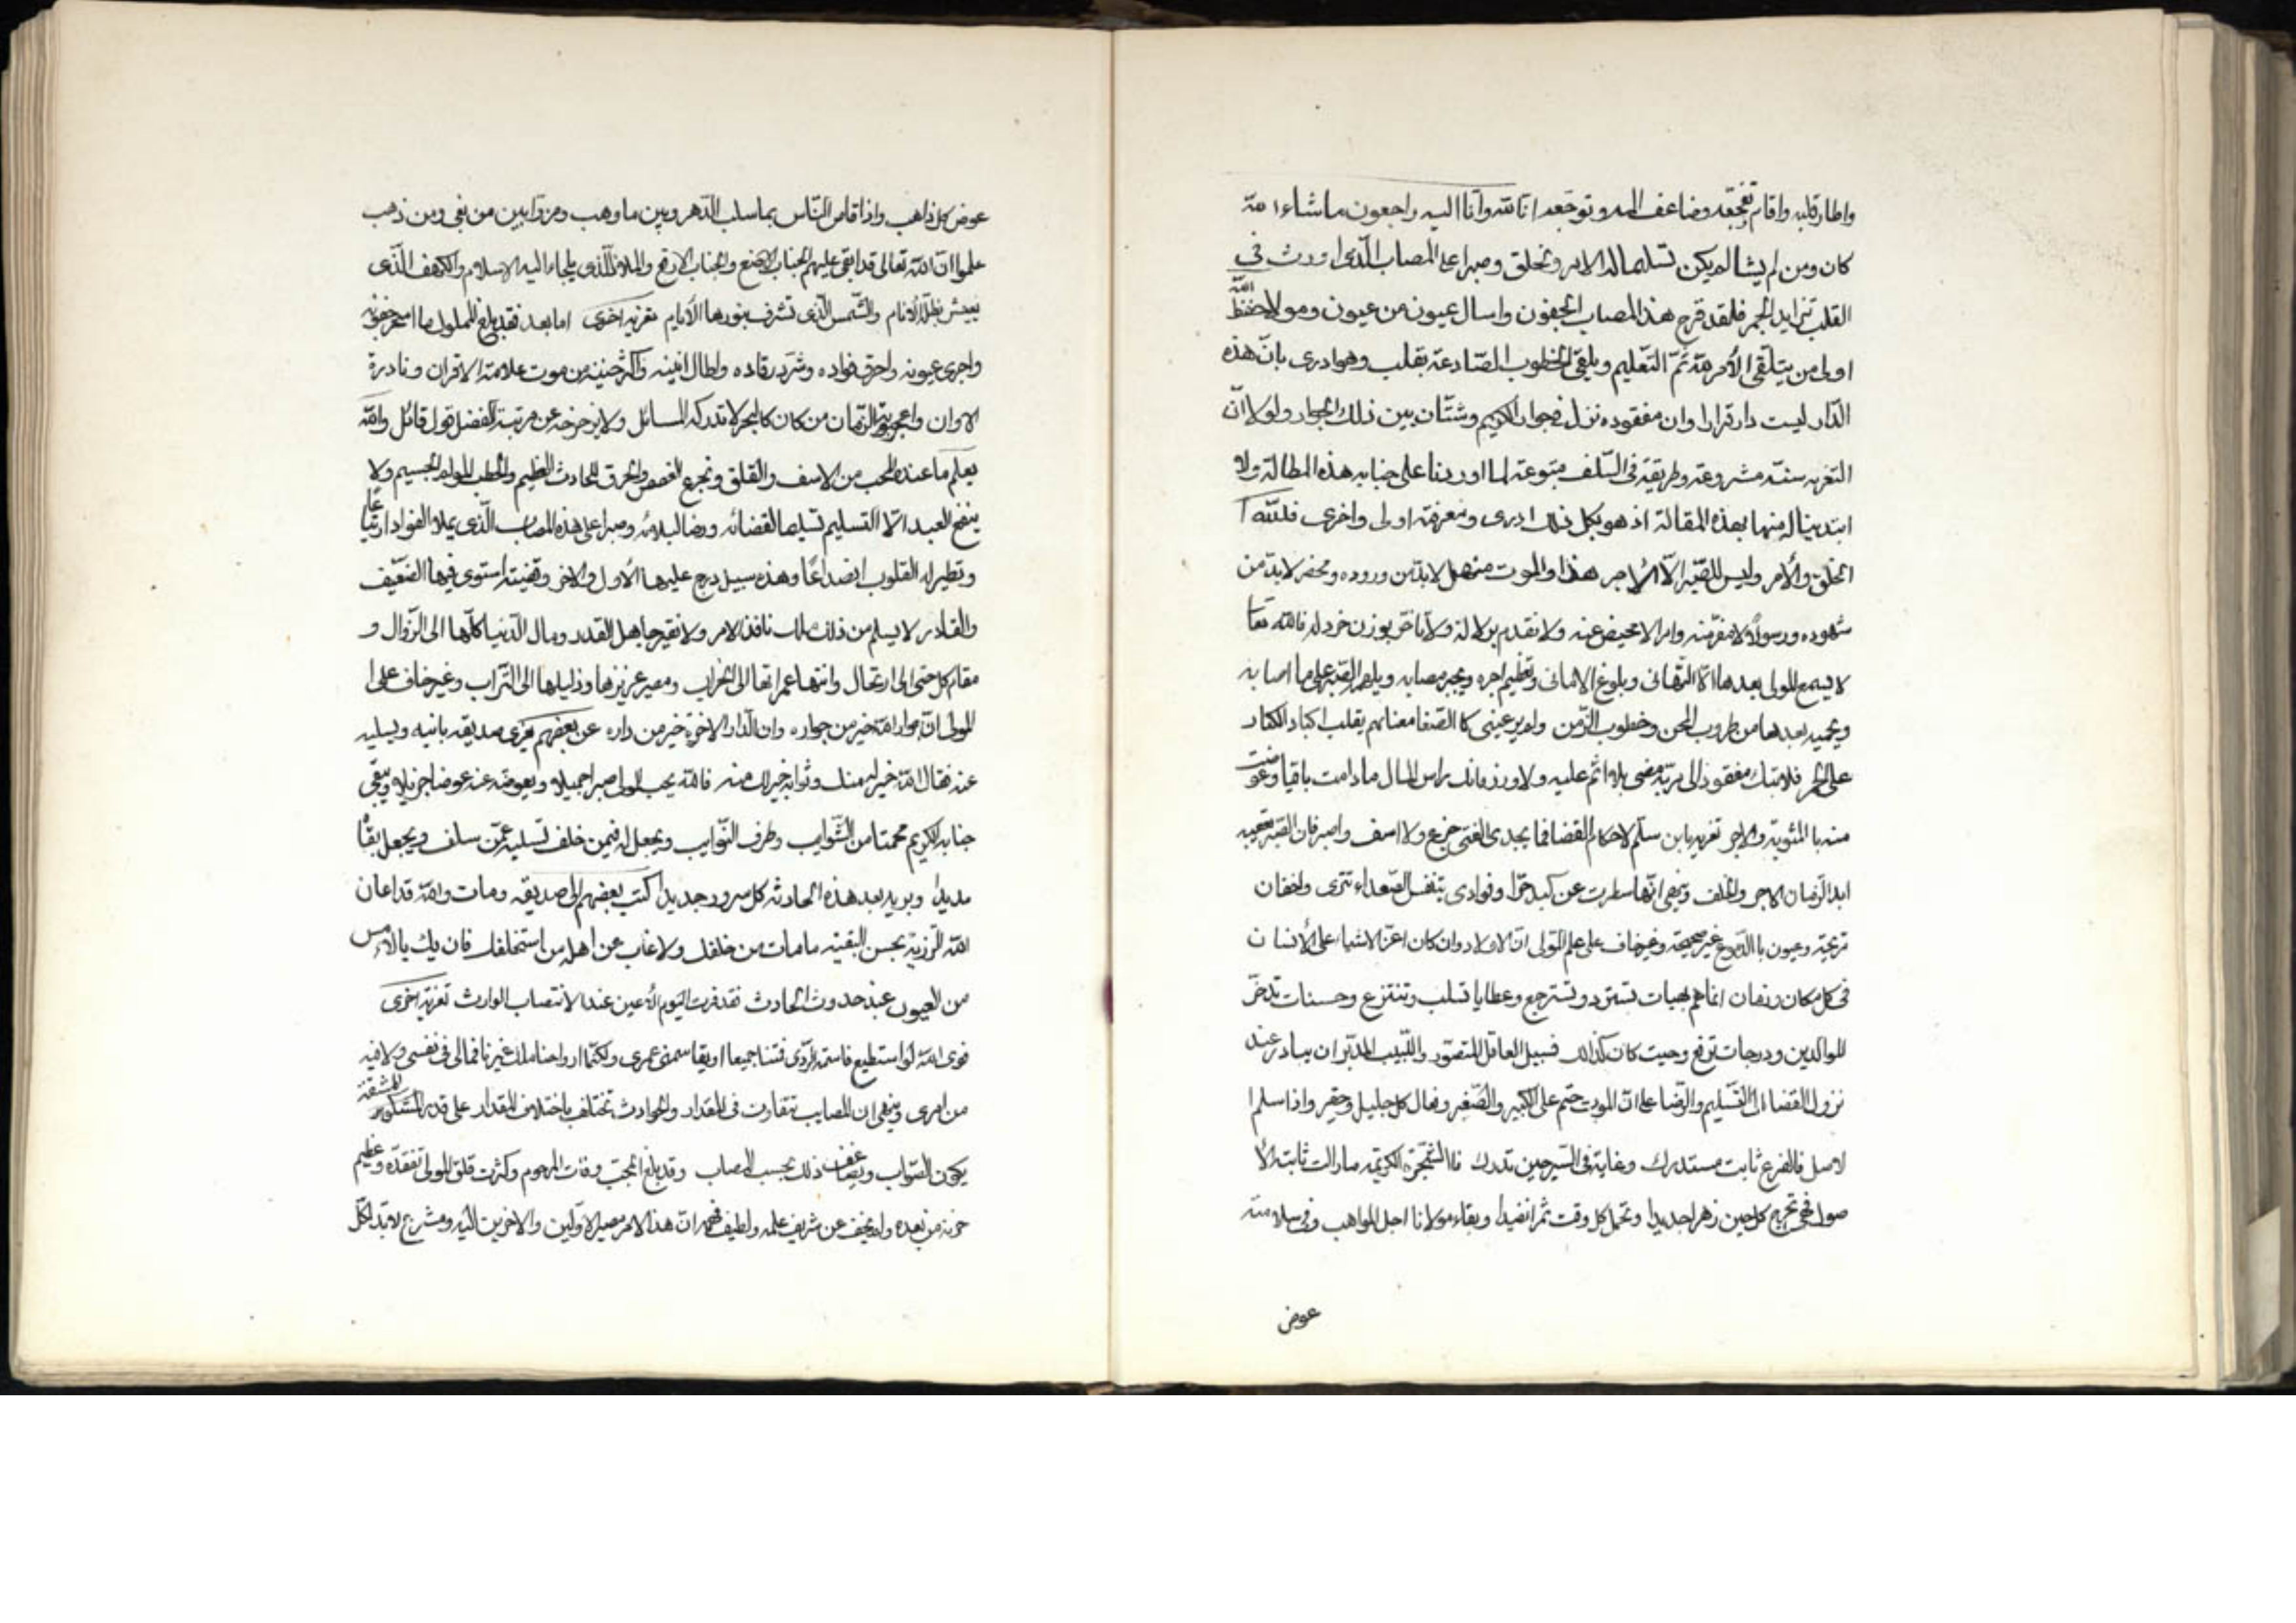 واطار قلبه واقام تفجعه وضاعف المه وتوجعه انا لله وانا اليه راجعون ما شاء الله
كان ومن لم يشا لم يكن تسليما لله الامر وتخلق وصبرا على المصاب الذى اورث فى
القلب تزايد الجمر فلقد قرح هذا المصاب الجفون واسال عيون من عيون ومولانا حفظه الله
اولى من يتلقى الأمر ثم التعليم ويلقى الخطوب الصادعة بقلب وهو ادرى بان هذه
الدار ليست دار قرار وان مفقوده نزل فى جوار الكريم وشتان بين ذلك الجوار ولولا ان
التعزيه سنة مشروعة وطريقة فى السلف متبوعة لما اوردنا على جنابه هذه المطالة ولا
ابتدينا له منها بهذه المقالة اذ هو بكل ذلك ادرى وبمعرفته اولى واخرى فلله ا
الخلق والأمر وليس للصبر الا الأجر هذا والموت منهل لابد من وروده ومحضر لابد من
شهوده ورسول لا مفر منه وامر لا محيص عنه ولا تقدم بدلالة ولا تاخر بوزن خردله فالله تعا
لا يسمع المولى بعدها الا التهانى وبلوغ الامانى وتعظيم اجره ويجبر مصابه ويلهم الصبر على ما اصابه
ويحميه بعدها من طروب المحن وخطوب الزمن ولم ير عينى كا الصفا معناهم يقلب اكباد الكبار
على الجمر فلا تبك مفقود الى ربه مضى بلا اثم عليه ولا وزر مالك راس المال ما دامت باقيا وعوضت
منه با المثوبة والاجر تعزيه يا من سلم لاحكام القضا فما يجدى الفتى جزع ولا اسف واصبر فان الصبر تعقبه
ابدا الزمان الاجر والخلف وينهى انها سطرت عن كبد حرا وفوادى يتنفس الصعداء تترى واجفان
قريحة وعيون با الدموع غير صحيحة وغير خاف على علم المولى ان الاولاد وان كان اعز الاشياء على الأنسان
فى كل مكان وزمان انما هم هبات تسترد وتسترجع وعطايا تسلب وتنتزع وحسنات تدخر
للوالدين ودرجات ترفع وحيث كان كذلك فسبيل العاقل المتصور واللبيب المدبر ان يبادر عند
نزول القضا الى التسليم والرضا علما ان الموت حتم على الكبير والصغير وفعال كل جليل وحقير واذا سلم ا
لاصل فالفرع ثابت مستدرك وغاية فى السير حين تدرك فا الشجرة الكريمه مازالت ثابته الأ
صول فهى تخرج كل حين زهرا جديدا وتحمل كل وقت ثمرا نضيدا وبقاء مولانا اجل المواهب وفى سلامته
عوض
عوض كل ذاهب واذا قاس الناس بما سلب الدهر وبين ما وهب ومن وابين من بقى ومن ذهب
علموا ان الله تعالى قد ابقى عليهم الجناب الامنع والجناب الارفع والملاذ الذى يلجاء اليه الاسلام والكهف الذى
يعيش بظله الأنام والشمس الذى تشرف بنورها الأيام تعزيه اخرى اما بعد فقد بلغ المملوك ما اسهر جفونه
واجرى عيونه واحرق فواده وشرد رقاده واطال انينه واكثر حنينه من موت علامة الاقران ونادرة
الاوان واعجوبة الزمان من كان كالبحر لا تدركه المسائل ولا يزحزحه عن مرتبة الفضل قول قائل والله
يعلم ما عند المحب من الاسف والقلق وتجرع الغصص والحرق للحادث العظيم والخطب المولم الجسيم ولا
ينفع العبد الا التسليم تسليما لقضائه ورضا لبلائه وصبرا على هذه المصاب الذى يملاء الفواد ارتياعا
وتطير له القلوب انصداعا وهذه سبيل درج عليها الأول والاخر وقضية استوى فيها الضعيف
والقادر لا يسلم من ذلك ملك نافذ الامر ولا فقير جاهل القدر ومال الدنيا كلها الى الزوال و
مقام كل حتى الى ارتحال وانتها عمرانها الى الخراب ومصير عزيزها وذليلها الى التراب وغير خاف على ا
لمولى ان جوار الله خير من جواره وان الدار الاخرة خير من داره عن بعضهم يعزى صديقه بابنه ويسليه
عنه فقال الله خير له منك وثوابه خير لك منه فالله يحب المولى صبرا جميلا ويعوضه عنه عوضا جزيلا ويبقى
جنابه الكريم محمتا من الشوايب وطرف النوايب ويجعل له فيمن خلف تسليه عمن سلف ويجعل بقاه
مديدا ويريد بعد هذه الحادثه كل سرور جديدا كتب بعضهم الى صديقه ومات والله قد اعان
الله الرزية بحسن البقيه ما مات من خلفك ولا غاب عن اهله من استخلفك فان يك بالامس
من العيون عند حدوث الحادث فقد قرت اليوم الأعين عند الانتصاب الوارث تعزية اخرى
فوى الله لو استطيع قاسمته الردى فمتنا جميعا او يقاسمنى عمرى ولكنما ارواحنا ملك غيرنا فمالى فى نفسى ولا فيه
من امرى وينهى ان المصايب تتفاوت فى المقدار والحوادث تختلف باختلاف المقدار على قدر المشقة
يكون الثواب ويضاعف ذلك بحسب المصاب وقد بلغ المحب وفات المرحوم وكثرت قلق المولى لفقده وعظيم
حزنه من بعده ولم يخف عن شريف علمه ولطيف فهمه ان هذا الامر مصير الاولين والاخرين اليه ومشرع لابد لكل